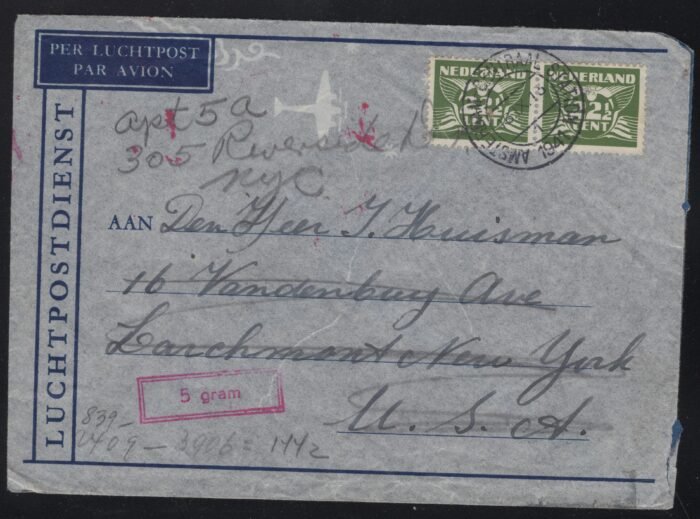 PER LUCHTPOST
PAR AVION
LUCHTPOSTDIENST
NEDERLAND
2½
CENT
NEDERLAND
2½
CENT
apt 5a
305 Riverside Dr
NYC
AAN Den Heer J. Huisman
16 Vandenburg Ave
Larchmont New York
U. S. A.
5 gram
839-
2409 - 3906 = 1442